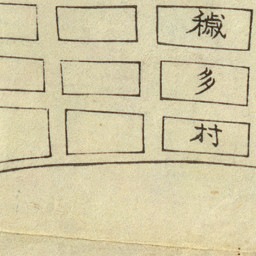 穢
多
村